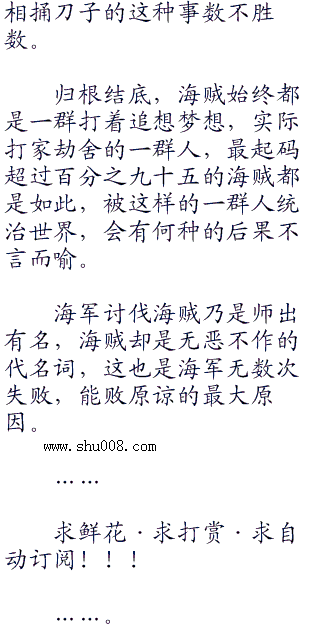 相捅刀子的这种事数不胜
数。
归根结底，海贼始终都
是一群打着追想梦想，实际
打家劫舍的一群人，最起码
超过百分之九十五的海贼都
是如此，被这样的一群人统
治世界，会有何种的后果不
言而喻。
海军讨伐海贼乃是师出
有名，海贼却是无恶不作的
代名词，这也是海军无数次
失败，能败原谅的最大原
因。
www.shu008.com
……
求鲜花·求打赏·求自
动订阅！！！
……。